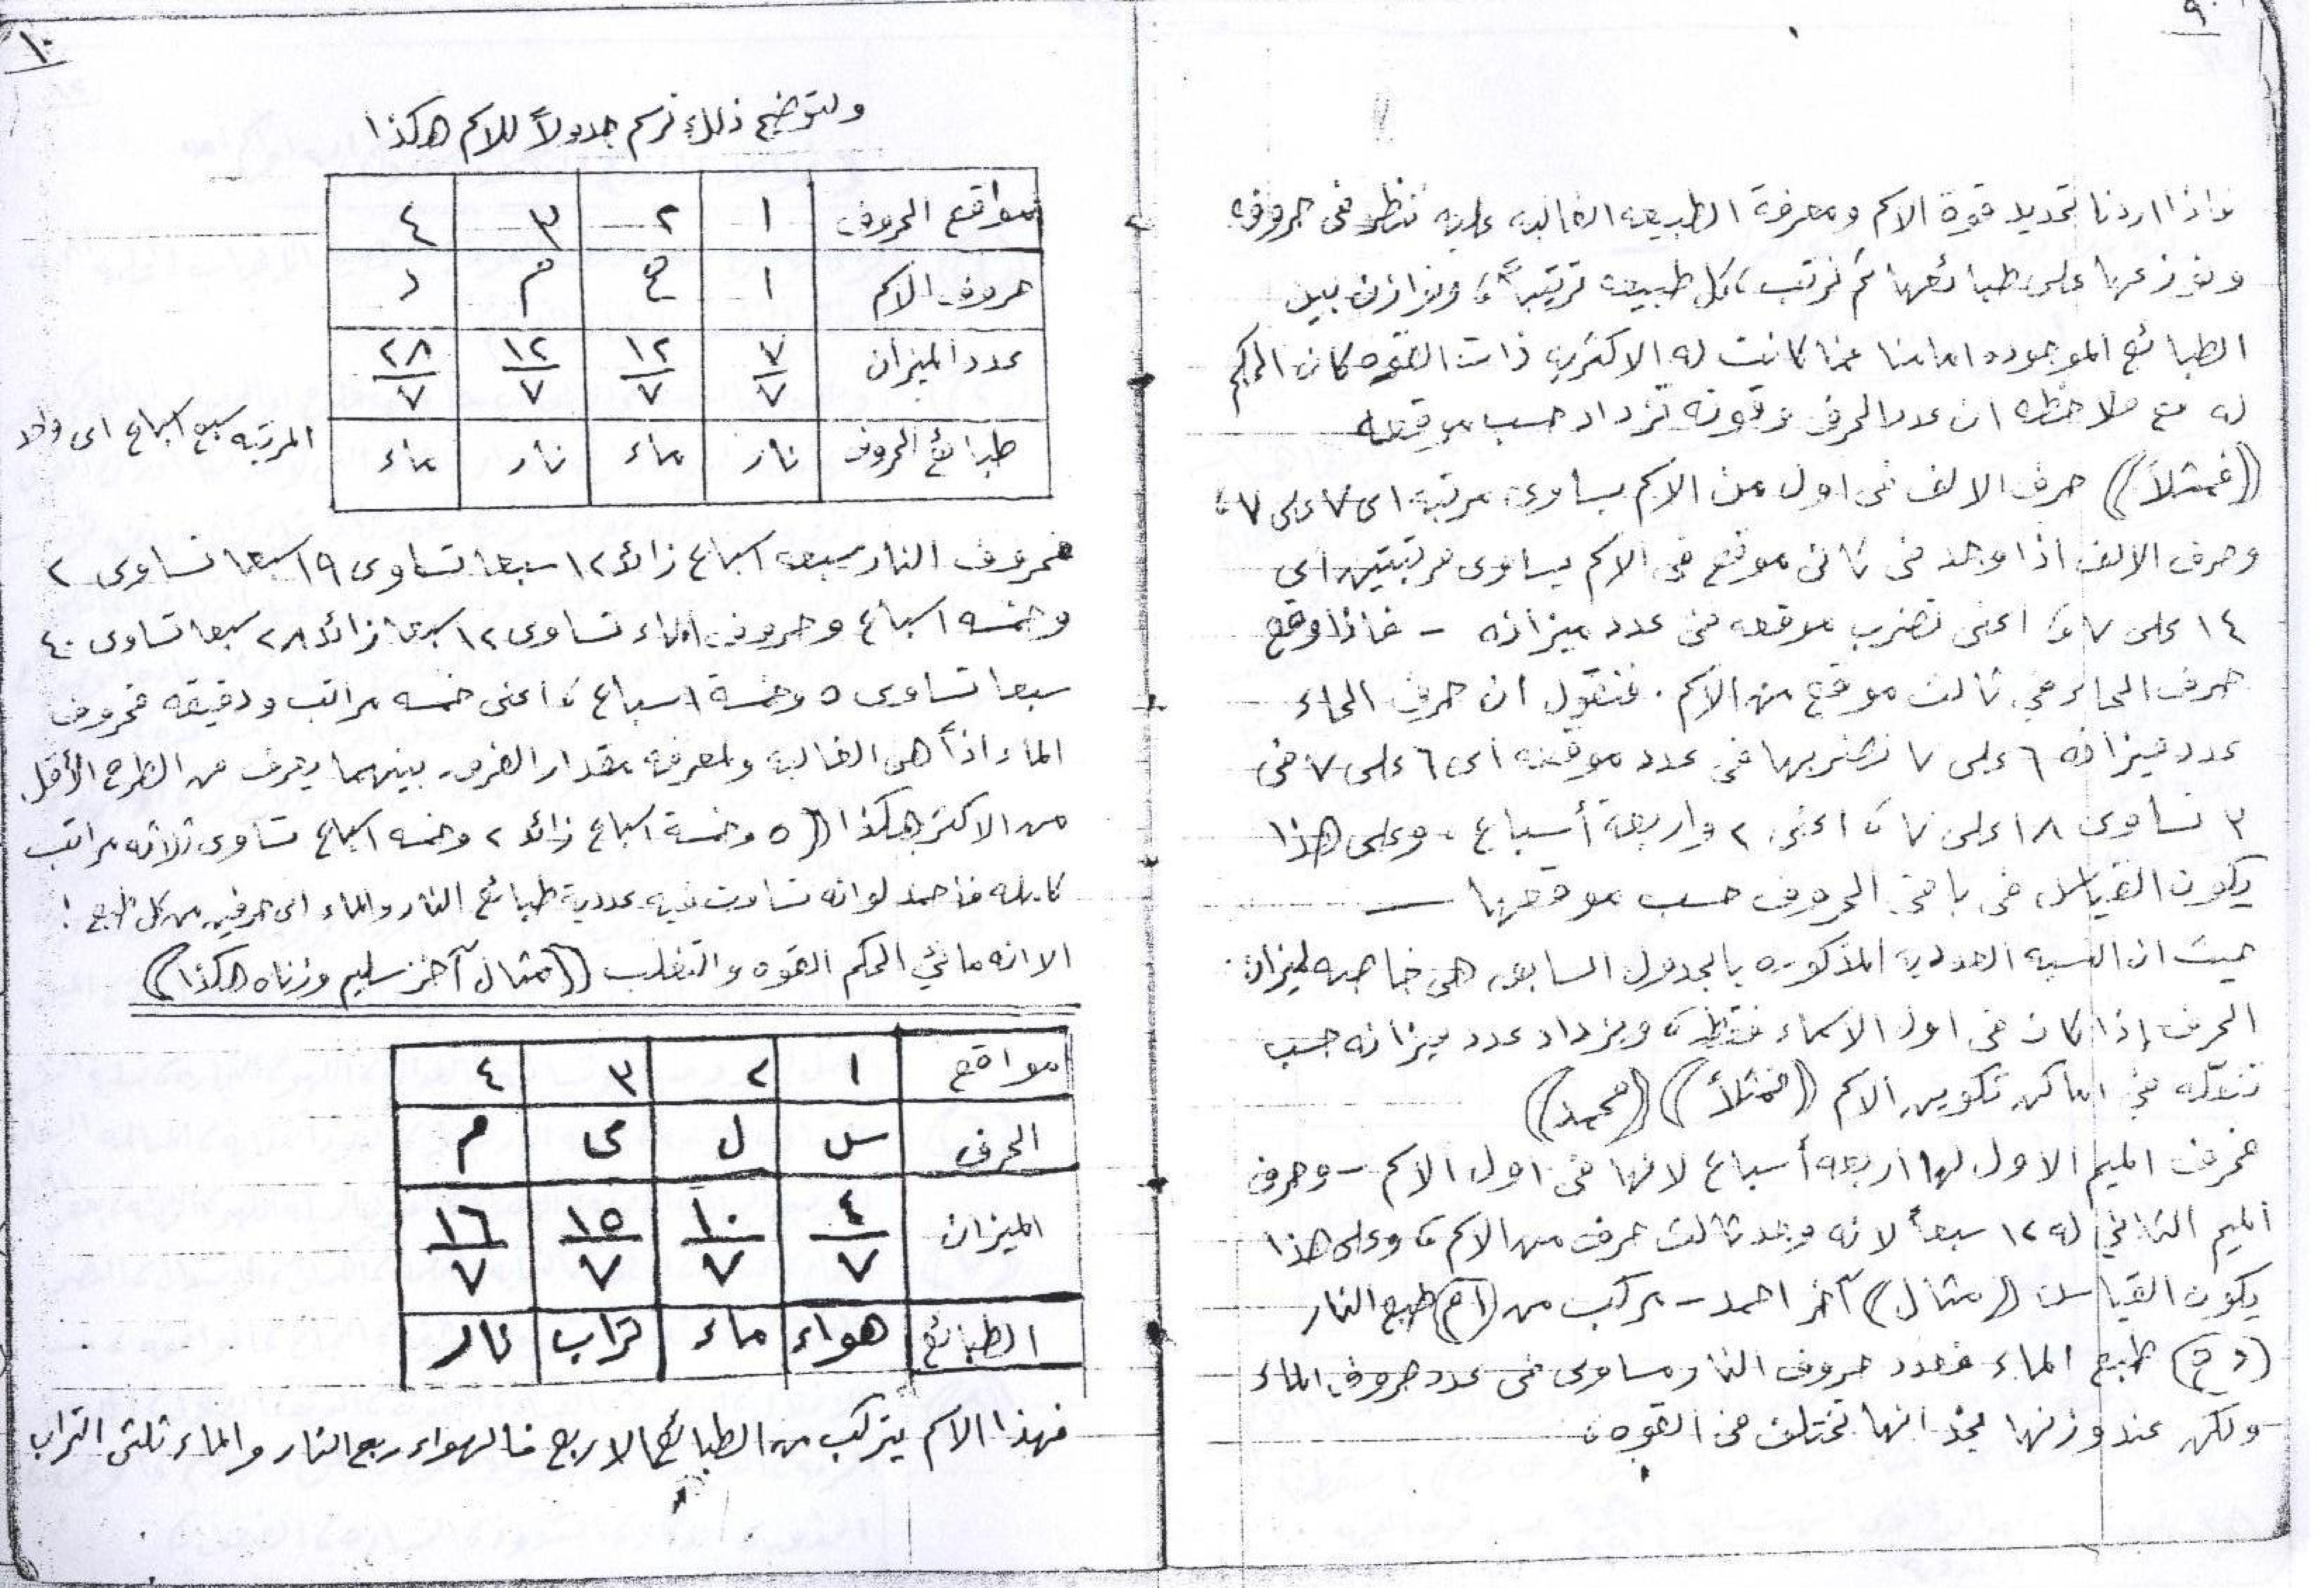 ٩
فاذا اردنا تحديد قوة الاسم ومعرفة الطبيعه الغالبه عليه ننظر فى حروفه
ونوزعها على طبائعها ثم نرتب كل طبيعه ترتيباً، ونوازن بين
الطبائع الموجوده امامنا فما كانت له الاكثريه ذات القوه كان الحكم
له مع ملاحظه ان عدد الحرف وقوته تزداد حسب موقعه
((فمثلاً)) حرف الالف فى اول من الاسم يساوى مرتبه اى ٧ على ٧،
وحرف الالف اذا وجد فى ثانى موقع فى الاسم يساوى مرتبتين اى
١٤ على ٧، اعنى تضرب موقعه فى عدد ميزانه - فاذا وقع
حرف الحاء فى ثالث موقع من الاسم. فنقول ان حرف الحاء
عدد ميزانه ٦ على ٧ نضربها فى عدد موقعه اى ٦ على ٧ فى
٣ تساوى ١٨ على ٧، اعنى ٢ واربعة أسباع. وعلى هذا
يكون القياس فى باقى الحروف حسب موقعها —
حيث ان النسبه العدديه المذكوره بالجدول السابق هى خاصه لميزان
الحرف إذا كان فى اول الاسماء فقط، ويزداد عدد ميزانه حسب
تنقّله فى اماكن تكوين الاسم ((فمثلاً)) ((محمد))
فحرف الميم الاول لها اربعه أسباع لانها فى اول الاسم - وحرف
الميم الثانى له ١٢ سبعاً لانه وجد ثالث حرف من الاسم، وعلى هذا
يكون القياس ((مثال)) آخر احمد - مركب من (ا م) طبع النار
(د ح) طبع الماء فعدد حروف النار مساوى فى عدد حروف الماء
ولكن عند وزنها نجد انها تختلف فى القوه،
١٠
ولتوضيح ذلك نرسم جدولاً للاسم هكذا
مواقع الحروف ١ ٢ ٣ ٤
حروف الاسم ا ح م د
عدد الميزان ٧/٧ ١٢/٧ ١٢/٧ ٢٨/٧
طبائع الحروف نار ماء نار ماء
المرتبه سبع اسباع اى واحد
فحروف النار سبعه اسباع زائد ١٢ سبعا تساوى ١٩ سبعا تساوى ٢
وخمسه اسباع وحروف الماء تساوى ١٢ سبعا زائد ٢٨ سبعا تساوى ٤٠
سبعا تساوى ٥ وخمسة اسباع، اعنى خمسه مراتب ودقيقه فحروف
الماء اذاً هى الغالبه ولمعرفه مقدار الفرق بينهما يعرف من الطرح الأقل
من الاكثر هكذا ((٥ وخمسة اسباع زائد ٢ وخمسه اسباع تساوى ثلاثه مراتب
كامله فأحمد لو انه تساوت فيه عددية طبائع النار والماء اى حرفين من كل طبع !
الا انه مائي الحكم القوه والتغلب ((مثال آخر سليم وزناه هكذا))
مواقع ١ ٢ ٣ ٤
الحرف س ل ى م
الميزان ٤/٧ ١٠/٧ ١٥/٧ ١٦/٧
الطبائع هواء ماء تراب نار
فهذا الاسم يتركب من الطبائع الاربع فالهواء ربع النار والماء ثلثى التراب